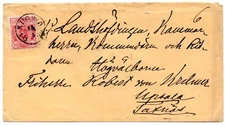 Landshöfdingen, Kammar-
herren, Kommendören och Rid-
daren
Högvälborne
Friherre Robert von Kræmer
Upsala